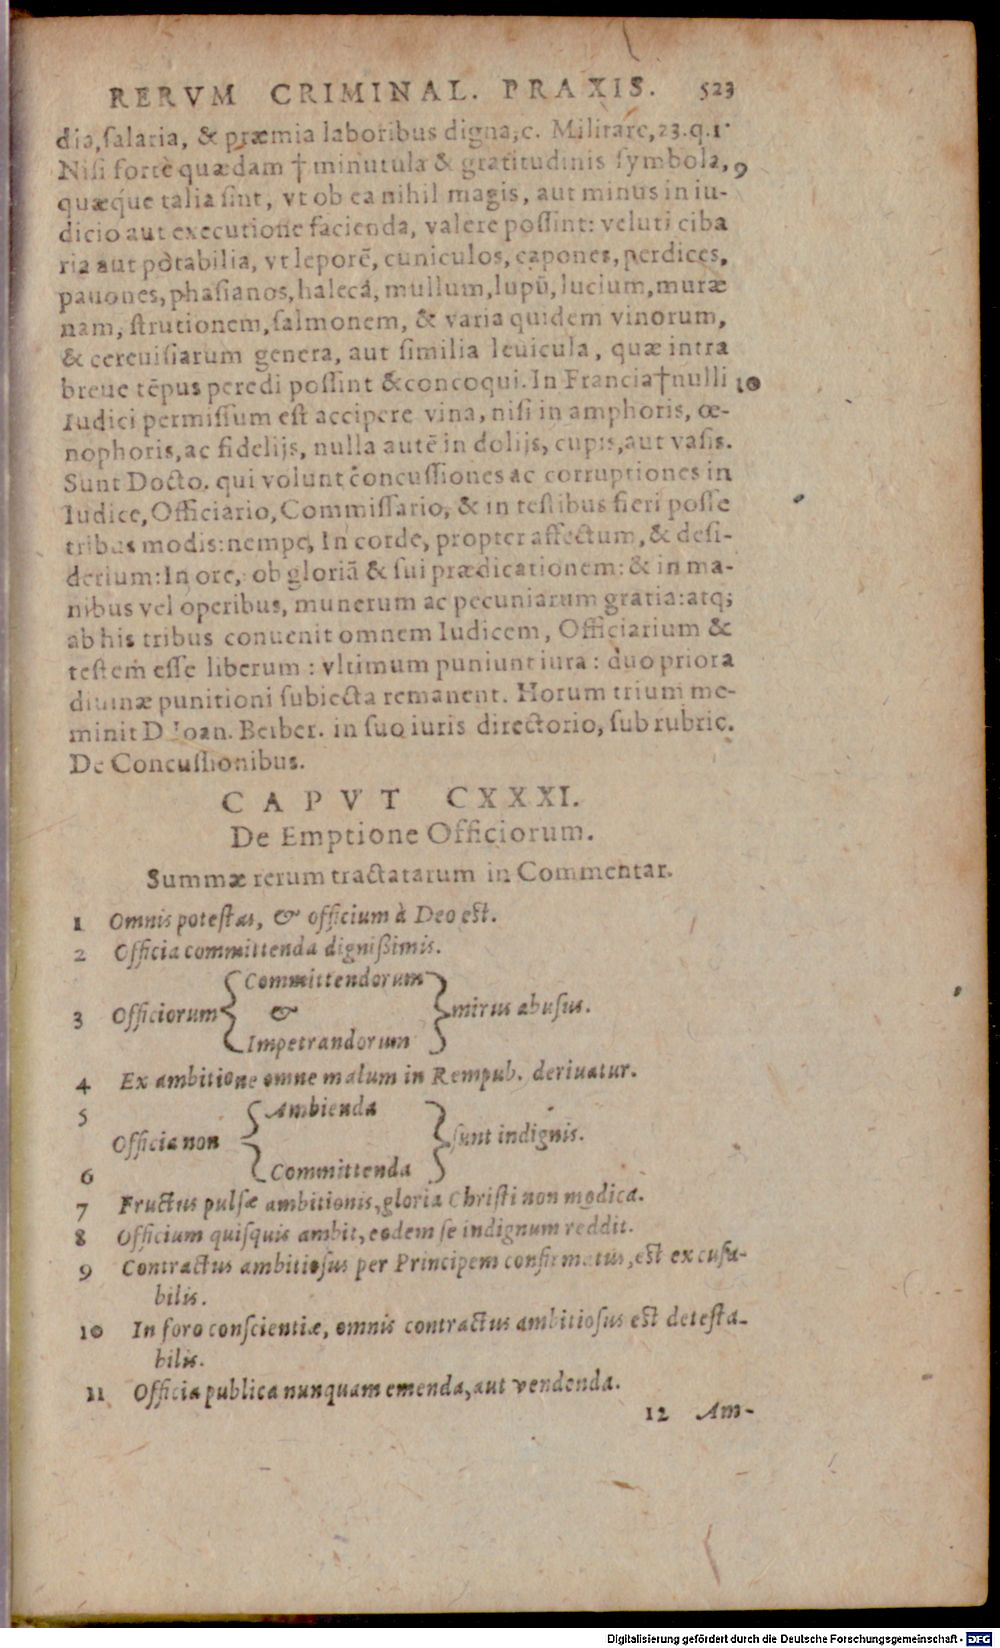 RERVM CRIMINAL. PRAXIS. 523
dia, salaria, & præmia laboribus digna, c. Militare, 23. q. 1.
Nisi fortè quædam † minutula & gratitudinis symbola, 9
quæq́ue talia sint, vt ob ea nihil magis, aut minus in iu-
dicio aut executione facienda, valere possint: veluti ciba
ria aut potabilia, vt leporẽ, cuniculos, capones, perdices,
pauones, phasianos, halecã, mullum, lupũ, lucium, muræ
nam, strutionem, salmonem, & varia quidem vinorum,
& cereuisiarum genera, aut similia leuicula, quæ intra
breue tẽpus peredi possint & concoqui. In Francia † nulli 10
Iudici permissum est accipere vina, nisi in amphoris, œ-
nophoris, ac fidelijs, nulla autẽ in dolijs, cupis, aut vasis.
Sunt Docto. qui volunt concussiones ac corruptiones in
Iudice, Officiario, Commissario, & in testibus fieri posse
tribus modis: nempe, In corde, propter affectum, & desi-
derium: In ore, ob gloriã & sui prædicationem: & in ma-
nibus vel operibus, munerum ac pecuniarum gratia: atq;
ab his tribus conuenit omnem Iudicem, Officiarium &
testem esse liberum: vltimum puniunt iura: duo priora
diuinæ punitioni subiecta remanent. Horum trium me-
minit D. Ioan. Berber. in suo iuris directorio, sub rubric.
De Concussionibus.
CAPVT CXXXI.
De Emptione Officiorum.
Summæ rerum tractatarum in Commentar.
1 Omnis potestas, & officium à Deo est.
2 Officia committenda dignißimis.
Committendorum
3 Officiorum & mirus abusus.
Impetrandorum
4 Ex ambitione omne malum in Rempub. deriuatur.
5 Ambienda
Officia non sunt indignis.
6 Committenda
7 Fructus pulsæ ambitionis, gloria Christi non modica.
8 Officium quisquis ambit, eodem se indignum reddit.
9 Contractus ambitiosus per Principem confirmatus, est excusa-
bilis.
10 In foro conscientiæ, omnis contractus ambitiosus est detesta-
bilis.
11 Officia publica nunquam emenda, aut vendenda.
12 Am-
Digitalisierung gefördert durch die Deutsche Forschungsgemeinschaft - DFG